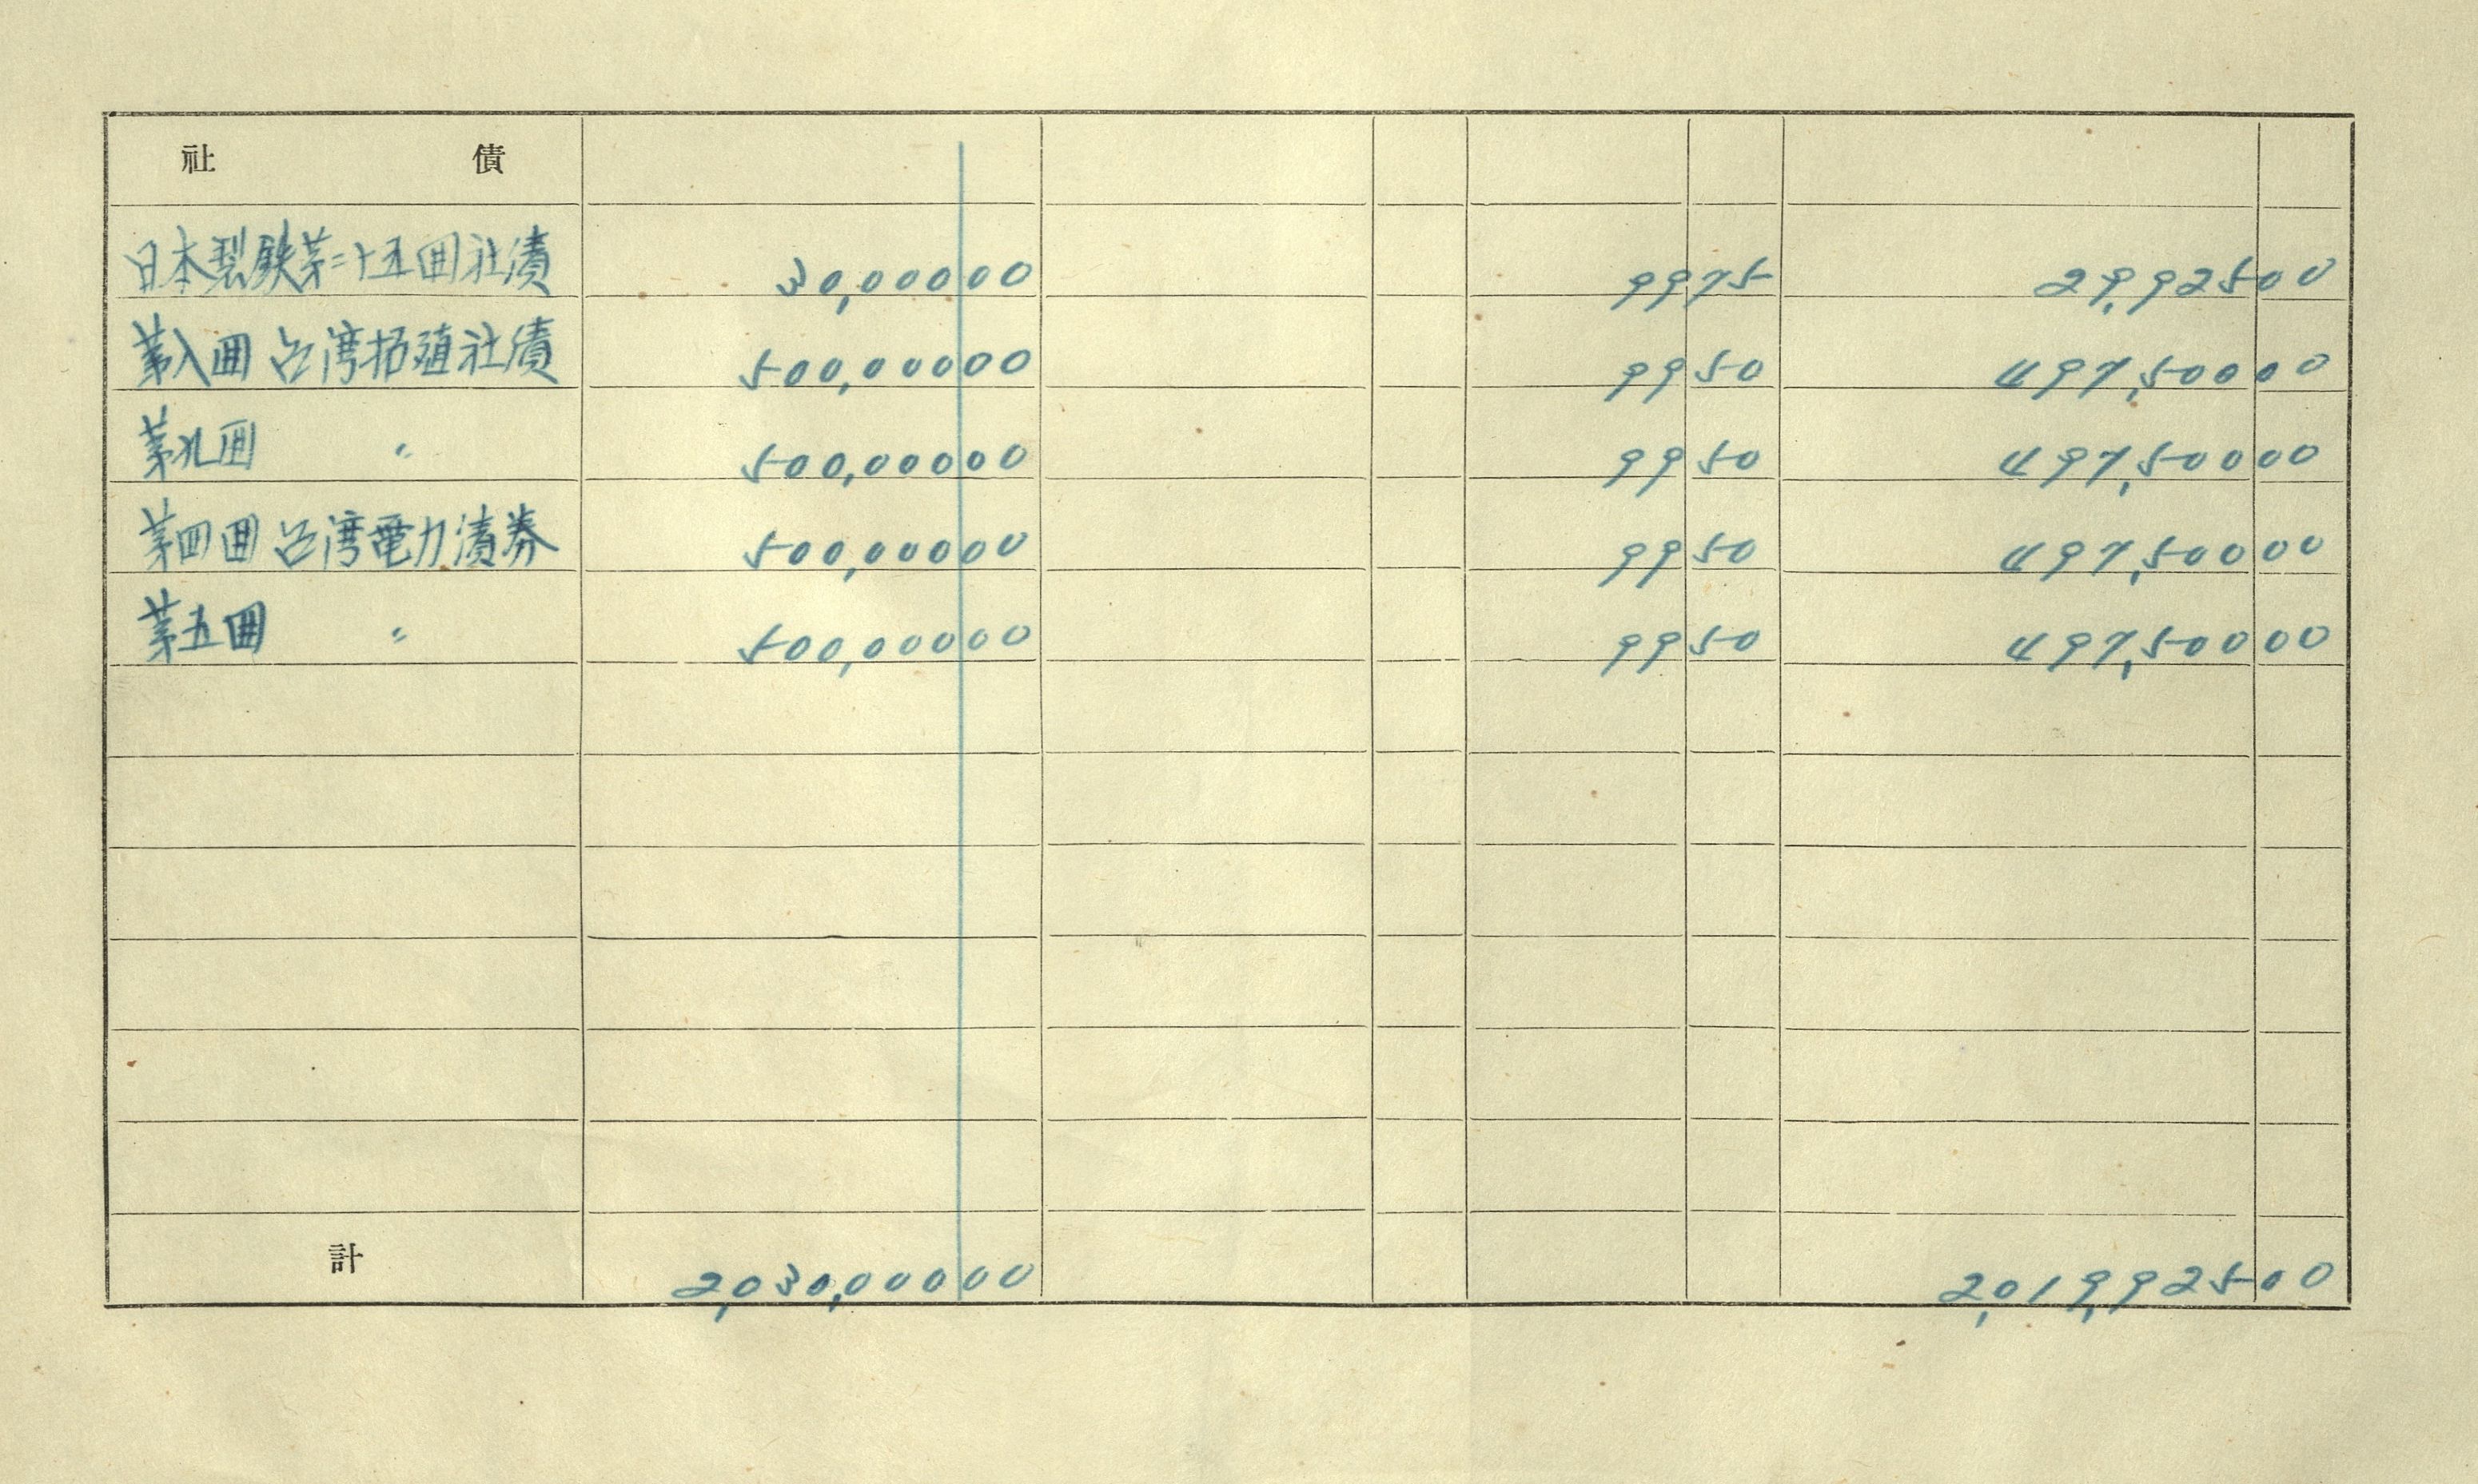 社債
日本製鉄第二十五回社債 30,00000 0 9975 29,92500
第八回 台湾拓殖社債 500,00000 9950 497,50000
第九回 〃 500,00000 9950 497,50000
第四回 台湾電力債券 500,00000 9950 497,50000
第五回 〃 500,00000 9950 497,50000
計 2,030,00000 2,019,92500